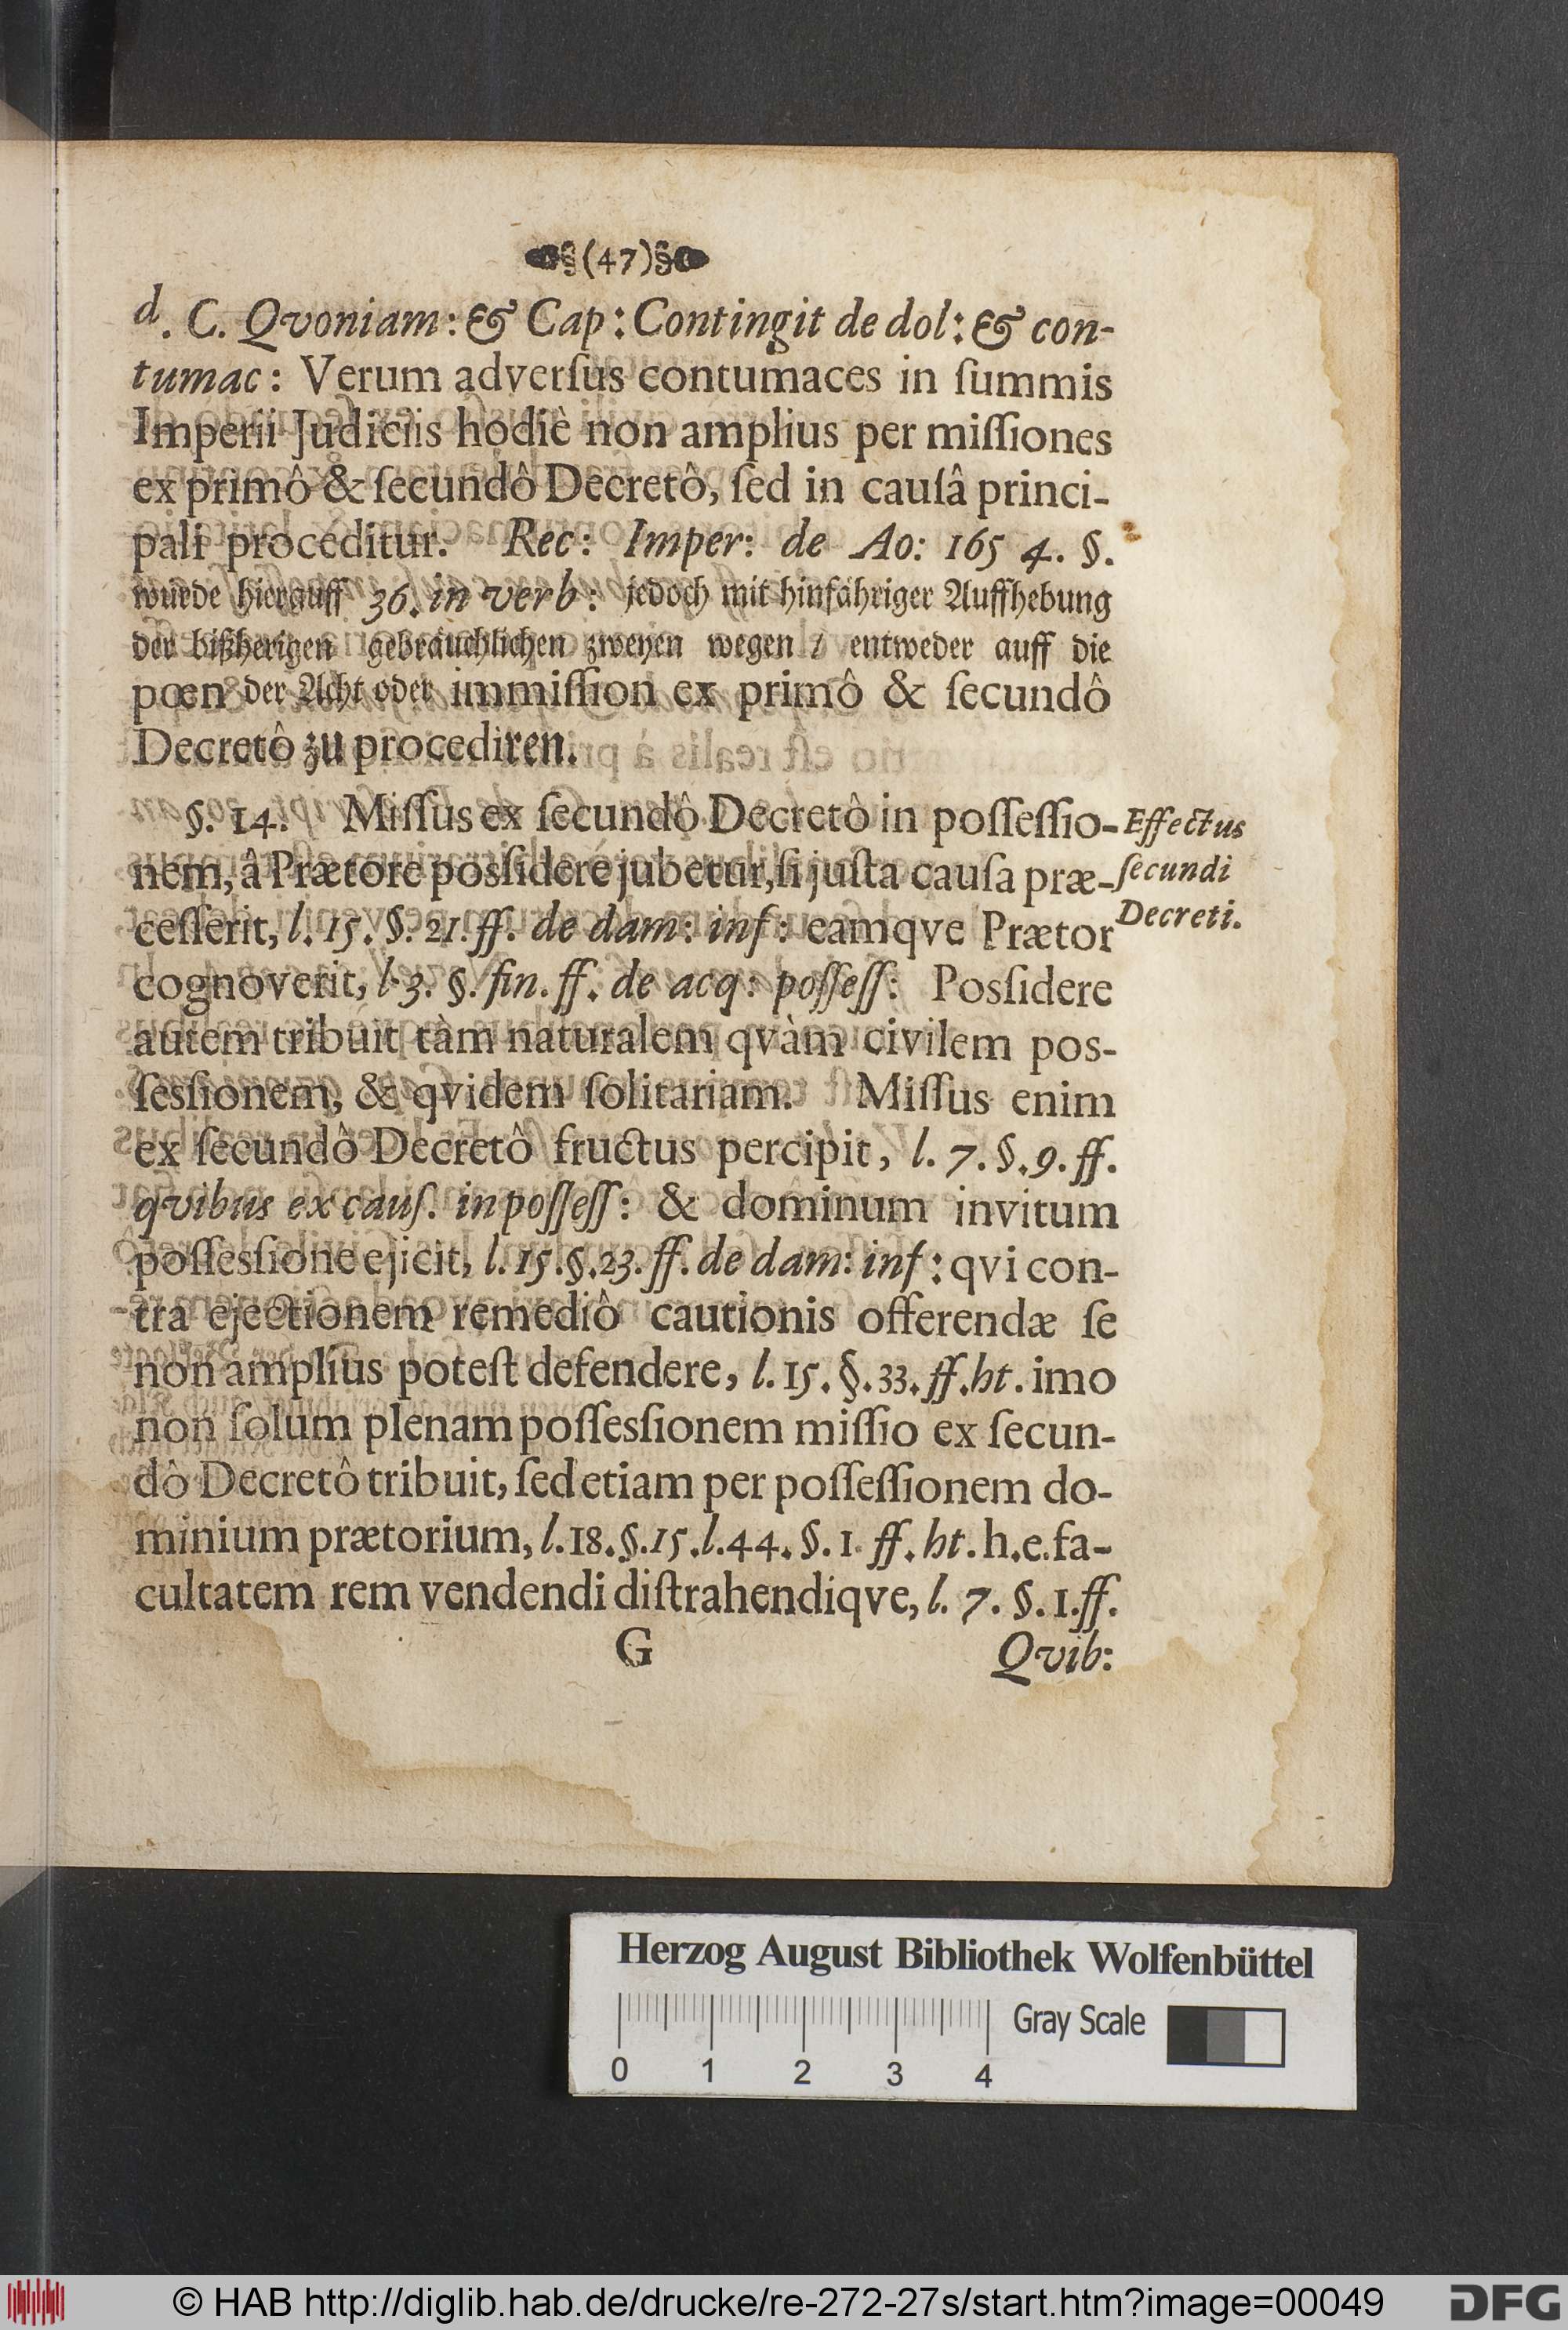 §(47)§
d. C. Qvoniam: & Cap: Contingit de dol: & con-
tumac: Verum adverſus contumaces in ſummis
Imperii Judiciis hodiè non amplius per miſſiones
ex primô & ſecundô Decretô, ſed in cauſâ princi-
pali proceditur. Rec: Imper: de Ao: 165 4. §.
wurde hierauff 36. in verb: jedoch mit hinfähriger Auffhebung
der bißherigen gebräuchlichen zweyen wegen / entweder auff die
pœn der Acht oder immiſſion ex primô & ſecundô
Decretô zu procediren.
§. 14. Miſſus ex ſecundô Decretô in poſſeſſio-
nem, â Prætore posſidere jubetur, ſi juſta cauſa præ-
ceſſerit, l. 15. §. 21. ff. de dam: inf: eamqve Prætor
cognoverit, l. 3. §. fin. ff. de acq: poſſeſſ: Posſidere
autem tribuit tàm naturalem qvàm civilem pos-
ſesſionem, & qvidem ſolitariam. Miſſus enim
ex ſecundô Decretô fructus percipit, l. 7. §. 9. ff.
qvibus ex cauſ. in poſſeſſ: & dominum invitum
poſſesſione ejicit, l. 15. §. 23. ff. de dam: inf: qvi con-
tra ejectionem remediô cautionis offerendæ ſe
non amplius poteſt defendere, l. 15. §. 33. ff. ht. imo
non ſolum plenam poſſesſionem miſſio ex ſecun-
dô Decretô tribuit, ſed etiam per poſſeſſionem do-
minium prætorium, l. 18. §. 15. l. 44. §. 1. ff. ht. h. e. fa-
cultatem rem vendendi diſtrahendiqve, l. 7. §. 1. ff.
G Qvib:
Effectus
ſecundi
Decreti.
Herzog August Bibliothek Wolfenbüttel
Gray Scale
0 1 2 3 4
© HAB http://diglib.hab.de/drucke/re-272-27s/start.htm?image=00049
DFG